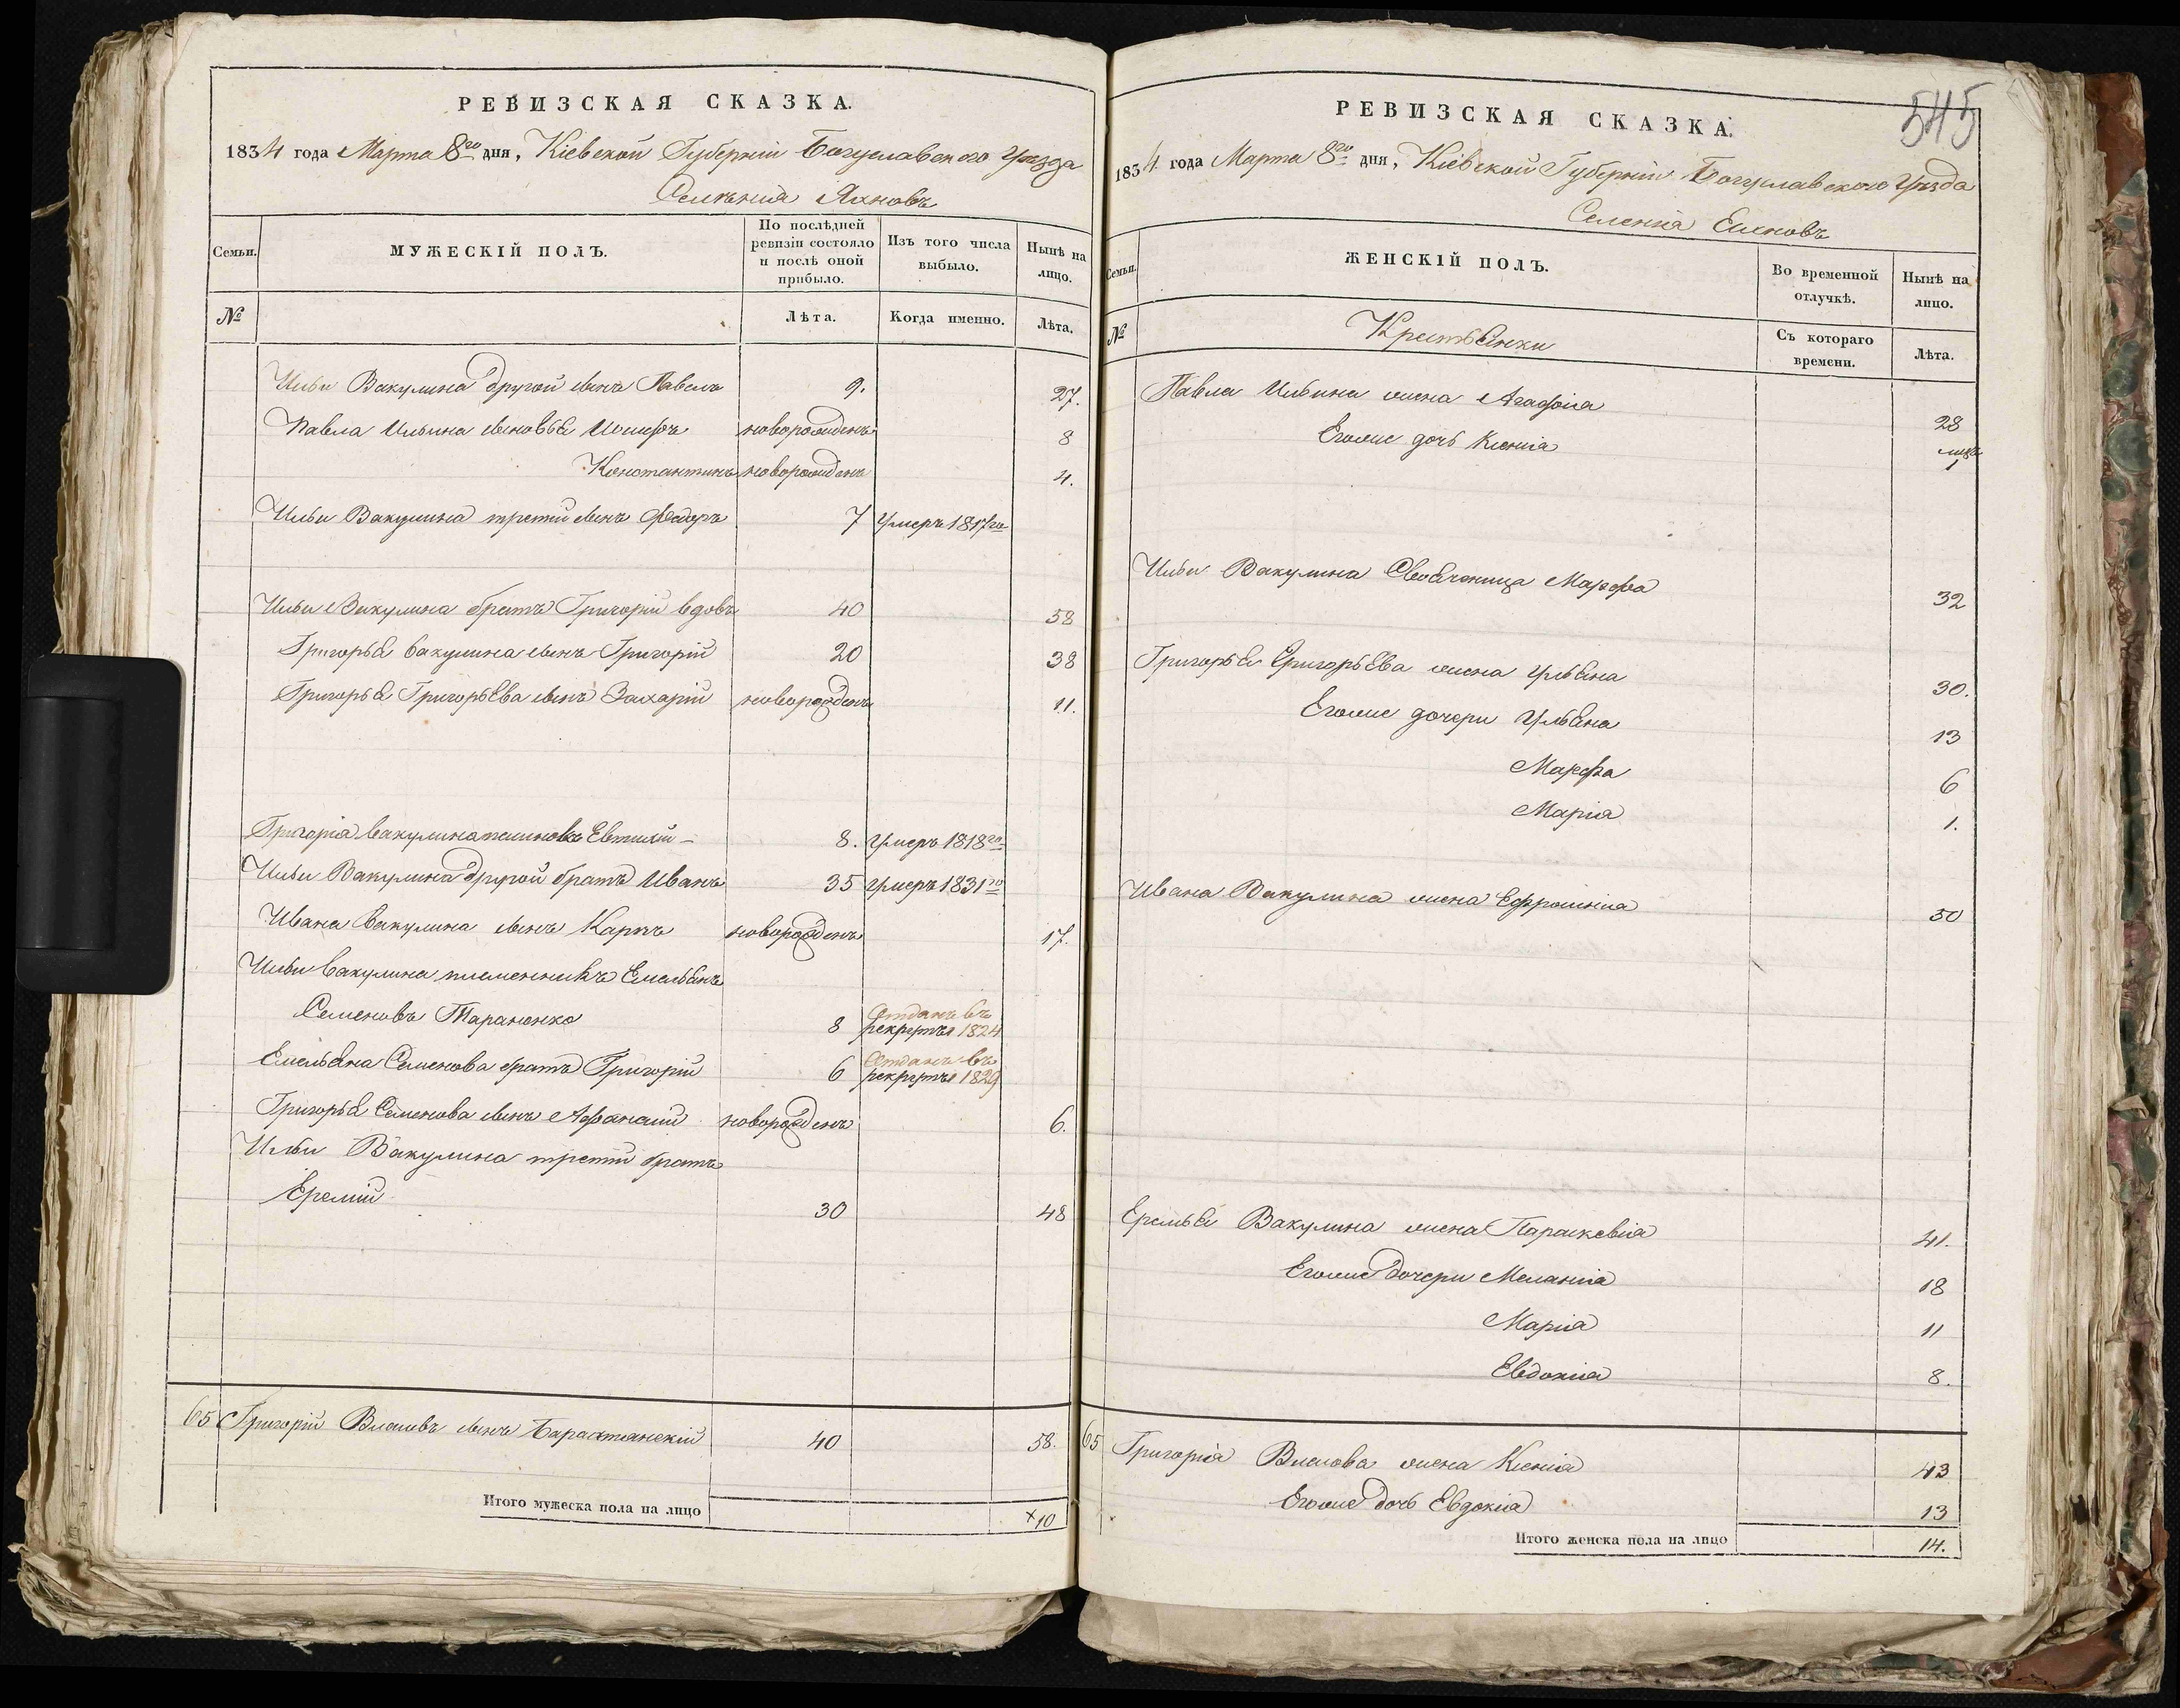 РЕВИЗСКАЯ СКАЗКА.
1834 года Марта 8го дня, Кіевской Губерніи Богуславского Уѣзда
Селѣнія Яхновъ
Семьи. МУЖЕСКІЙ ПОЛЪ. По послѣдней ревизіи состояло и послѣ оной прибыло. Изъ того числа выбыло. Нынѣ на лицо.
№ Лѣта. Когда именно. Лѣта.
Ильи Вакулина другой сынъ Павелъ 9. 27.
Павла Ильина сыновья Іосифъ новорожденъ 8
Константинъ новорожденъ 4.
Ильи Вакулина третій сынъ Федоръ 7 умеръ 1817го
Ильи Вакулина братъ Григорій вдовъ 40 58
Григорья Вакулина сынъ Григорій 20 38
Григорья Григорьева сынъ Захарій новорожденъ 11.
Григорія Вакулина Евтихій 8. умеръ 1818го
Ильи Вакулина другой братъ Иванъ 35 умеръ 1831го
Ивана Вакулина сынъ Карпъ новорожденъ 17.
Ильи Вакулина племенникъ Емельянъ
Семеновъ Тараненко 8 Отданъ въ рекруты 1824
Емельяна Семенова братъ Григорій 6 Отданъ въ рекруты 1829
Григорья Семенова сынъ Афанасій новорожденъ 6.
Ильи Вакулина третій братъ
Еремій 30 48
65 Григорій Власовъ сынъ Барахтянскій 40 58.
Итого мужеска пола на лицо 10
545
РЕВИЗСКАЯ СКАЗКА.
1834 года Марта 8го дня, Кіевской Губерніи Богуславского Уѣзда
Селенія
Семьи. ЖЕНСКІЙ ПОЛЪ. Во временной отлучкѣ. Нынѣ на лицо.
№ Крестьянки Съ котораго времени. Лѣта.
Павла Ильина жена Агафія 28
Егоже дочь Ксенія 1
Ильи Вакулина Своячница Марфа 32
Григорья Григорьева жена Ульяна 30.
Егоже дочери Ульяна 13
Марфа 6
Марія 1.
Ивана Вакулина жена Ефросинія 50
Еремья Вакулина жена Параскевія 41.
Егоже дочери Меланія 18
Марія 11
Евдокія 8.
65 Григорія Власова жена Ксенія 43
Егоже дочь Евдокія 13
Итого женска пола на лицо 14.